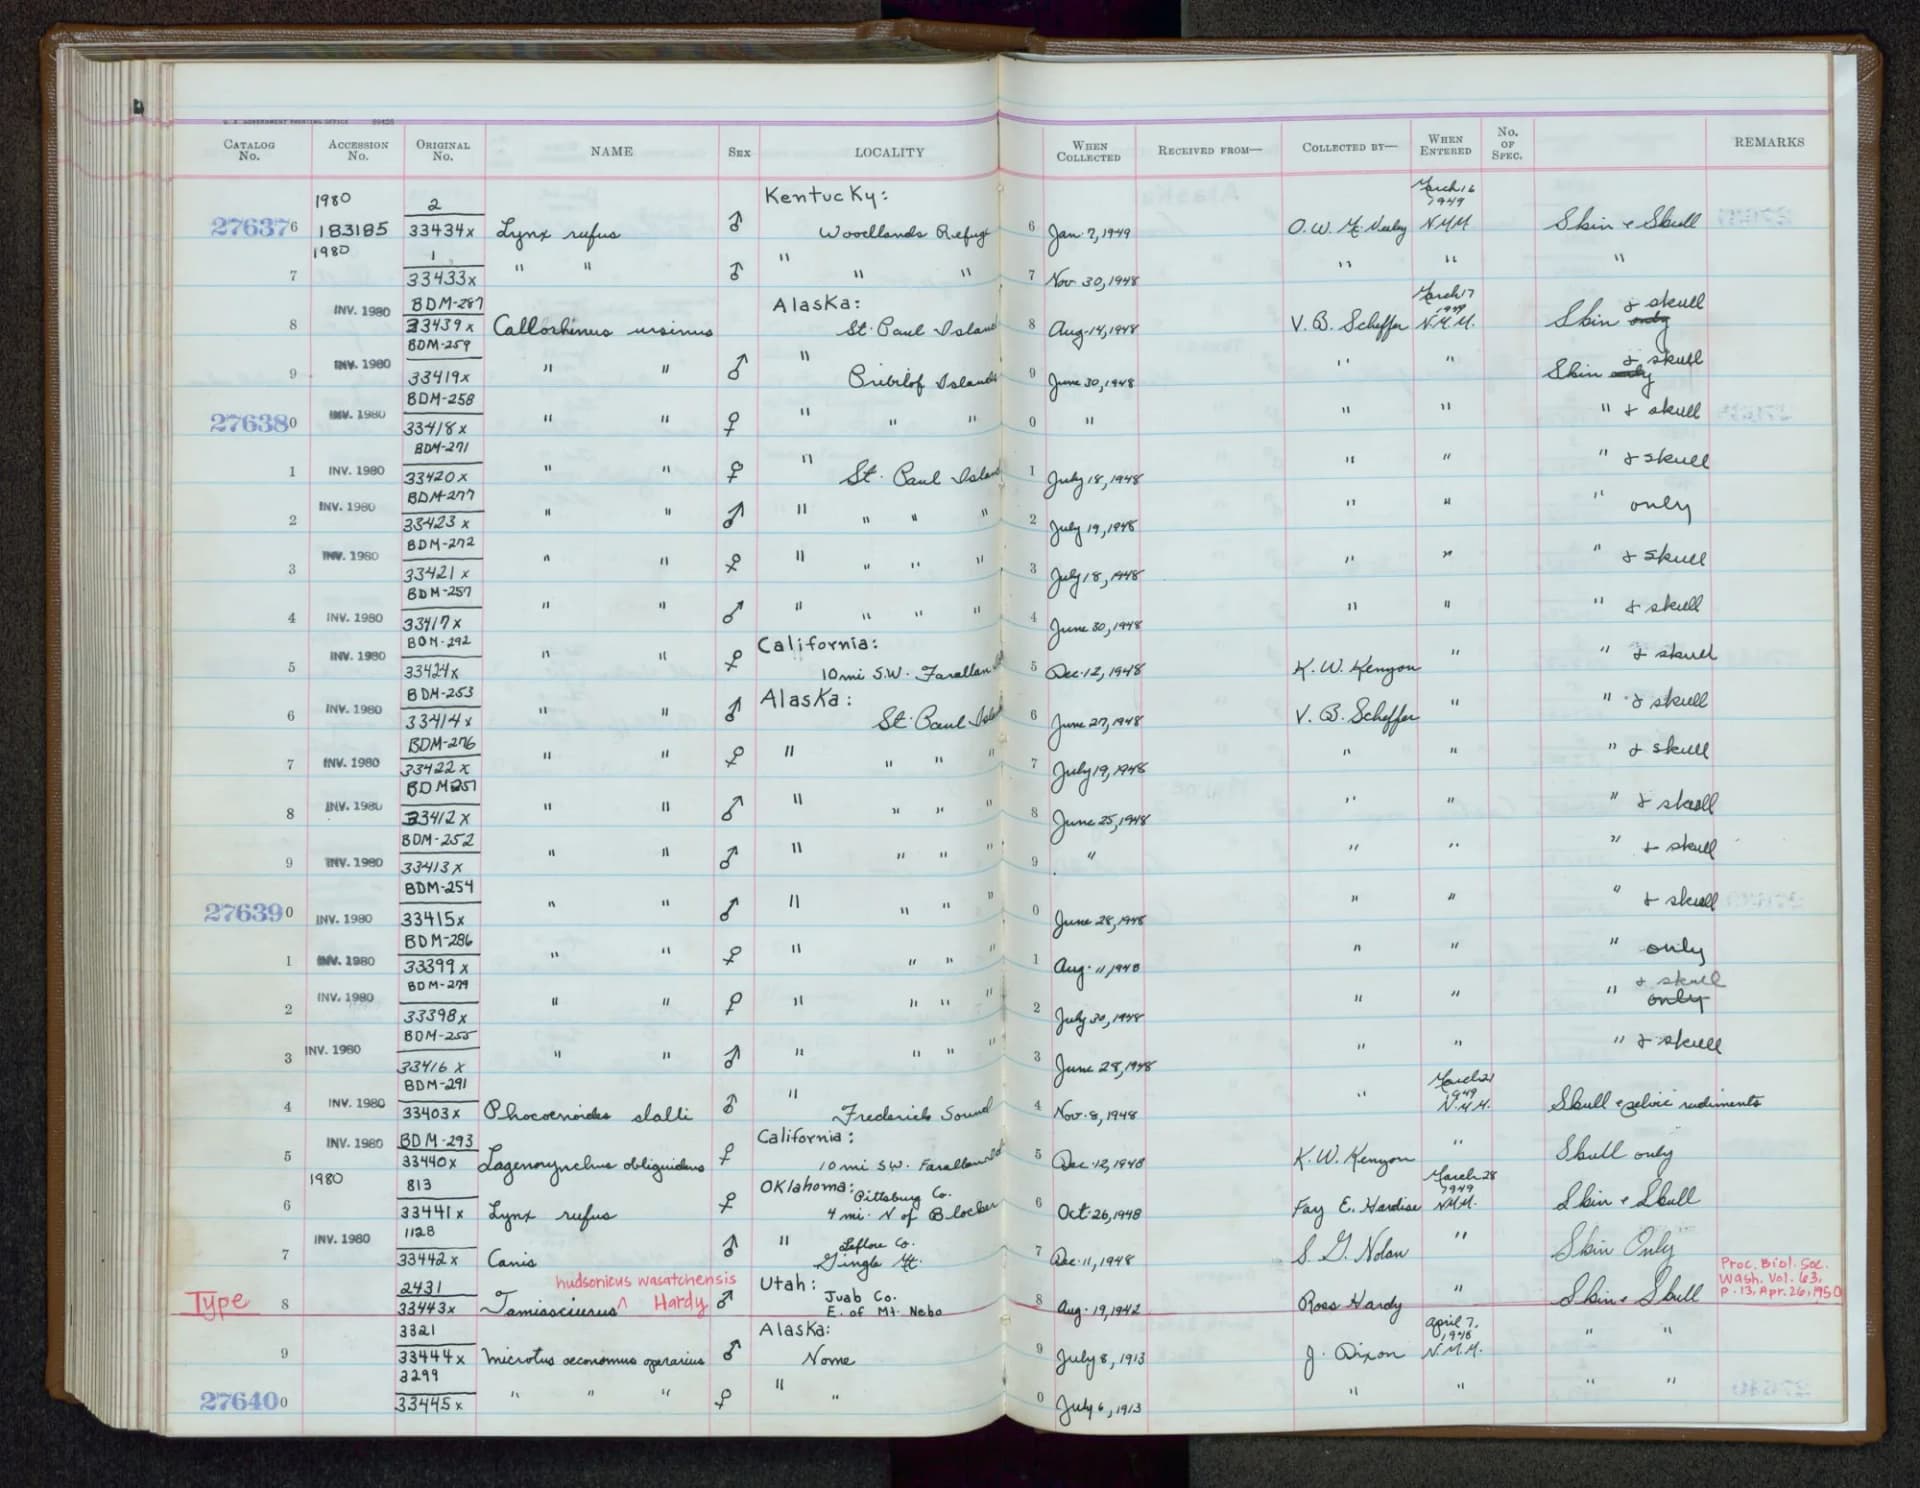 U. S. GOVERNMENT PRINTING OFFICE
CATALOG No. ACCESSION No. ORIGINAL No. NAME SEX LOCALITY WHEN COLLECTED RECEIVED FROM— COLLECTED BY— WHEN ENTERED No. OF SPEC. REMARKS
1980 2 Kentucky: March 16 1949
276376 183185 33434x Lynx rufus ♂ Woodlands Refuge 6 Jan. 7, 1949 O. W. McNeely N.M.M. Skin & Skull
1980 1
7 33433x " " ♂ " " " 7 Nov. 30, 1948 " " "
INV. 1980 BDM-287 Alaska: March 17 1949 & skull
8 33439x Callorhinus ursinus St. Paul Island 8 Aug. 14, 1948 V. B. Scheffer N.M.M. Skin only
INV. 1980 BDM-259 & skull
9 33419x " " ♂ " Pribilof Islands 9 June 30, 1948 " " Skin only
INV. 1980 BDM-258
276380 33418x " " ♀ " " " 0 " " " " & skull
BDM-271
1 INV. 1980 33420x " " ♀ " St. Paul Island 1 July 18, 1948 " " " & skull
INV. 1980 BDM-277
2 33423x " " ♂ " " " " 2 July 19, 1948 " " " only
INV. 1980 BDM-272
3 33421x " " ♀ " " " " 3 July 18, 1948 " " " & skull
BDM-257
4 INV. 1980 33417x " " ♂ " " " " 4 June 30, 1948 " " " & skull
INV. 1980 BDM-292 California:
5 33424x " " ♀ 10 mi S.W. Farallan 5 Dec. 12, 1948 K. W. Kenyon " " & skull
INV. 1980 BDM-253 Alaska:
6 33414x " " ♂ St. Paul Island 6 June 27, 1948 V. B. Scheffer " " & skull
BDM-276
7 INV. 1980 33422x " " ♀ " " " " 7 July 19, 1948 " " " & skull
BDM251
8 INV. 1980 33412x " " ♂ " " " " 8 June 25, 1948 " " " & skull
BDM-252
9 INV. 1980 33413x " " ♂ " " " " 9 " " " " & skull
BDM-254
276390 INV. 1980 33415x " " ♂ " " " " 0 June 28, 1948 " " " & skull
BDM-286
1 INV. 1980 33399x " " ♀ " " " " 1 Aug. 11, 1948 " " " only
BDM-279 & skull
2 INV. 1980 33398x " " ♀ " " " " 2 July 30, 1948 " " " only
BDM-255
3 INV. 1980 33416x " " ♂ " " " " 3 June 28, 1948 " " " & skull
BDM-291 " March 21 1949
4 INV. 1980 33403x Phocoenoides dalli ♂ Frederick Sound 4 Nov. 8, 1948 " N.M.M. Skull & pelvic rudiments
INV. 1980 BDM-293 California:
5 33440x Lagenorynchus obliquidens ♀ 10 mi S.W. Farallan 5 Dec. 12, 1948 K. W. Kenyon " Skull only
1980 813 Oklahoma: Pittsburg Co. March 28 1949
6 33441x Lynx rufus ♀ 4 mi. N of Blocker 6 Oct. 26, 1948 Fay E. Hardise N.M.M. Skin & Skull
INV. 1980 1128 " Leflore Co.
7 33442x Canis ♂ 7 Dec. 11, 1948 S. G. Nolan " Skin Only
2431 hudsonicus wasatchensis Utah: Juab Co. Proc. Biol. Soc. Wash. Vol. 63, p. 13, Apr. 26, 1950
Type 8 33443x Tamiasciurus ^ Hardy ♂ E. of Mt. Nebo 8 Aug. 19, 1942 Ross Hardy " Skin & Skull
3321 Alaska: April 7, 1948
9 33444x Microtus oeconomus operarius ♂ Nome 9 July 8, 1913 J. Dixon N.M.M. " "
3299
276400 33445x " " " ♀ " " 0 July 6, 1913 " " " "